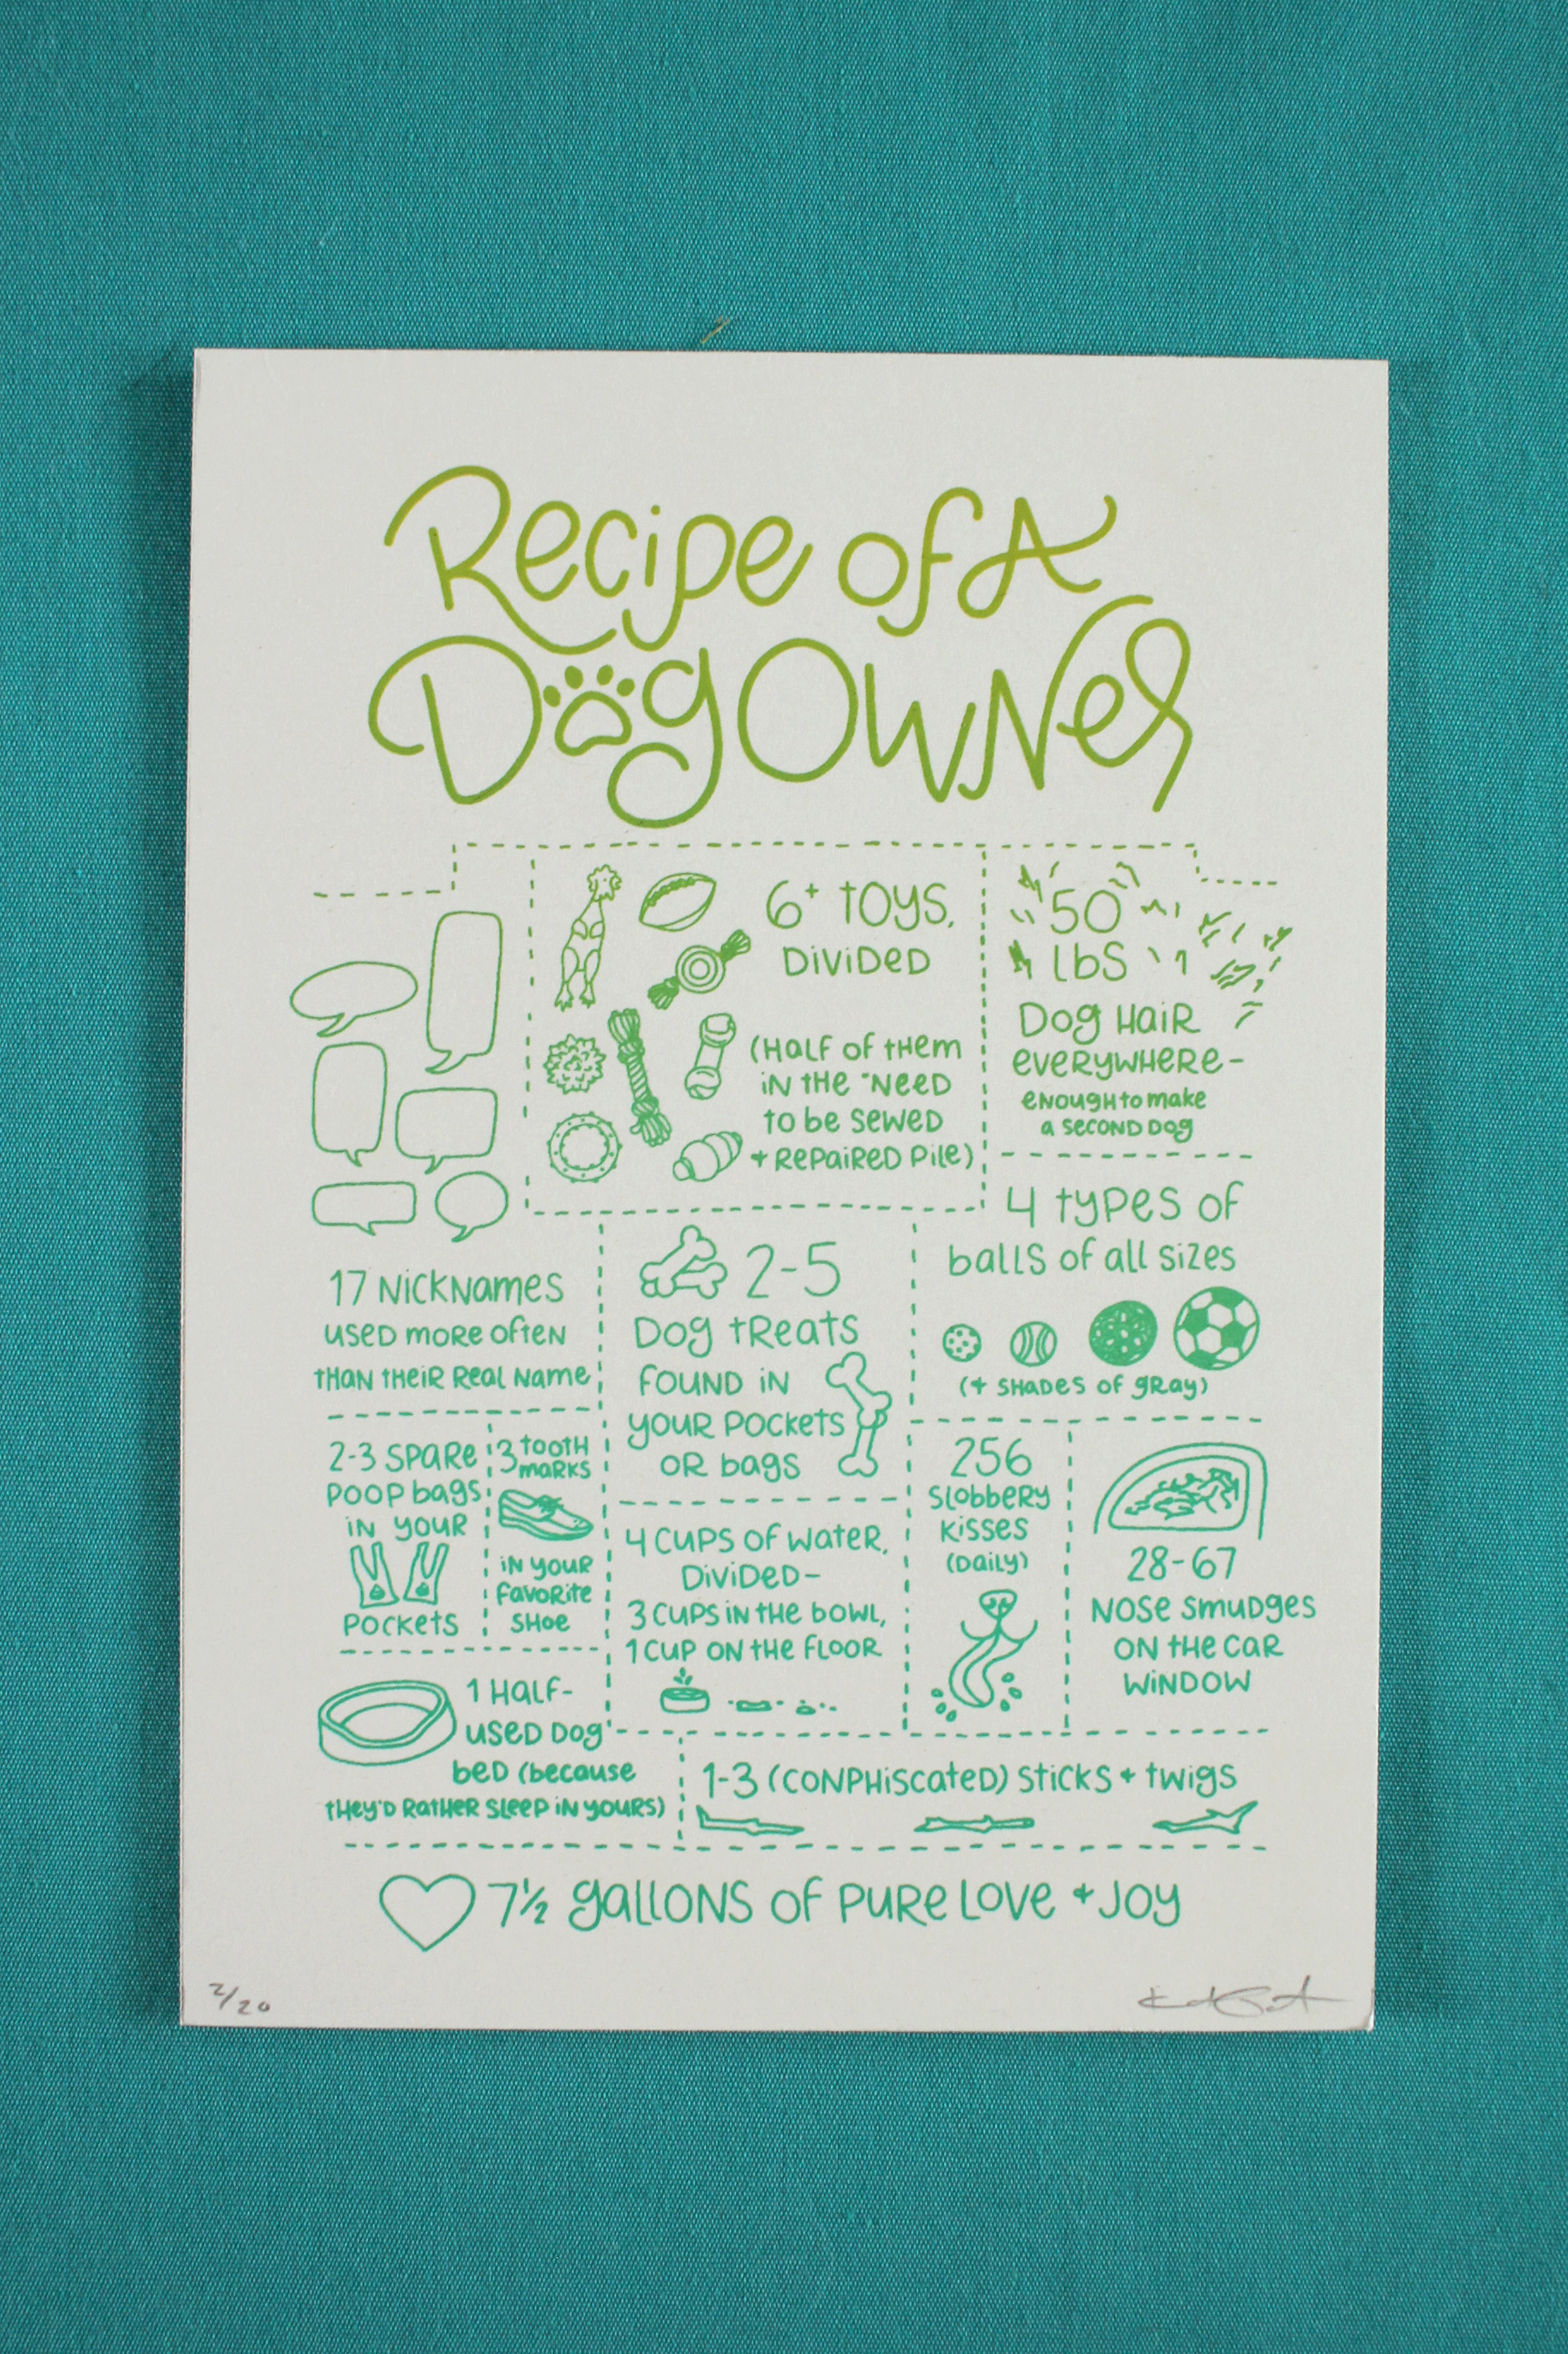 Recipe of A
Dog Owner
6+ toys,
Divided
(Half of them
in the "need
to be sewed
+ repaired pile)
50
lbs
Dog Hair
everywhere-
enough to make
a second dog
17 Nicknames
used more often
than their real name
2-5
Dog treats
found in
your pockets
or bags
4 types of
balls of all sizes
(+ shades of gray)
2-3 spare
poop bags
in your
pockets
3 tooth
marks
in your
favorite
shoe
4 cups of water,
Divided-
3 cups in the bowl,
1 cup on the floor
256
slobbery
kisses
(Daily)
28-67
Nose smudges
on the car
window
1 Half-
used dog
bed (because
they'd rather sleep in yours)
1-3 (conphiscated) sticks + twigs
7½ gallons of pure love + joy
2/20